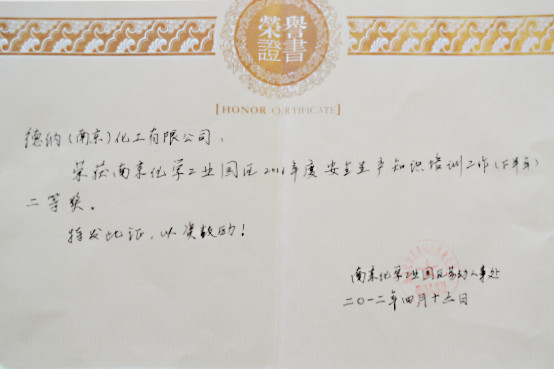 榮譽
證書
[HONOR CERTIFICATE]
德纳(南京)化工有限公司:
荣获南京化学工业园区2011年度安全生产知识培训工作(下半年)
二等奖。
特发此证,以资鼓励!
南京化学工业园区劳动人事处
二〇一二年四月十六日